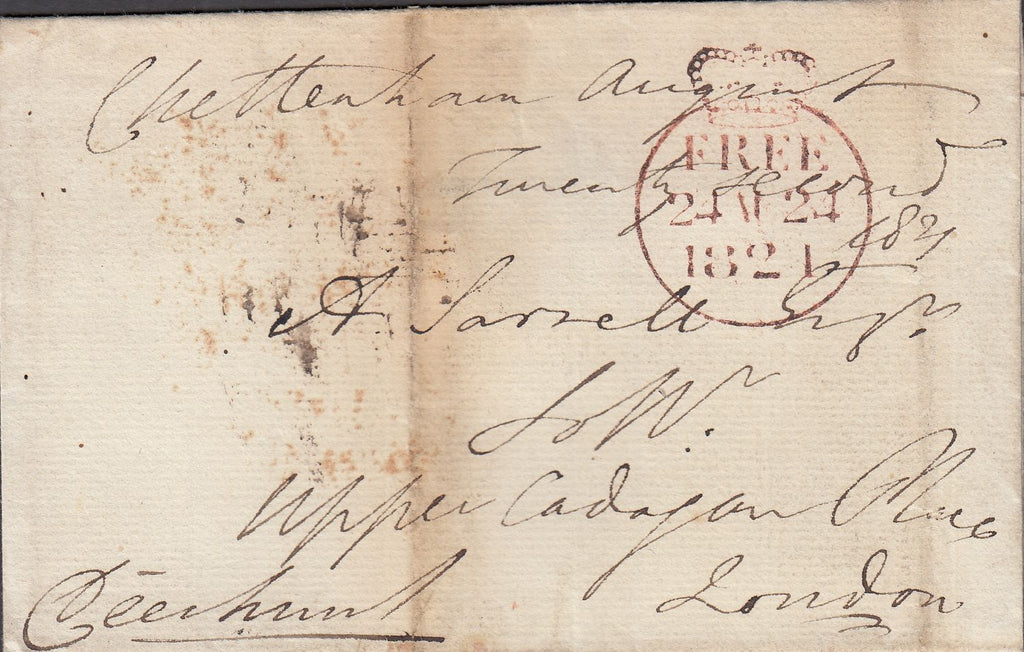 Cheltenham August
Twenty second
1821
FREE
24 AU 24
1821
A Sarzell Esqr.
Upper Cadogan Place
London
Deerhurst